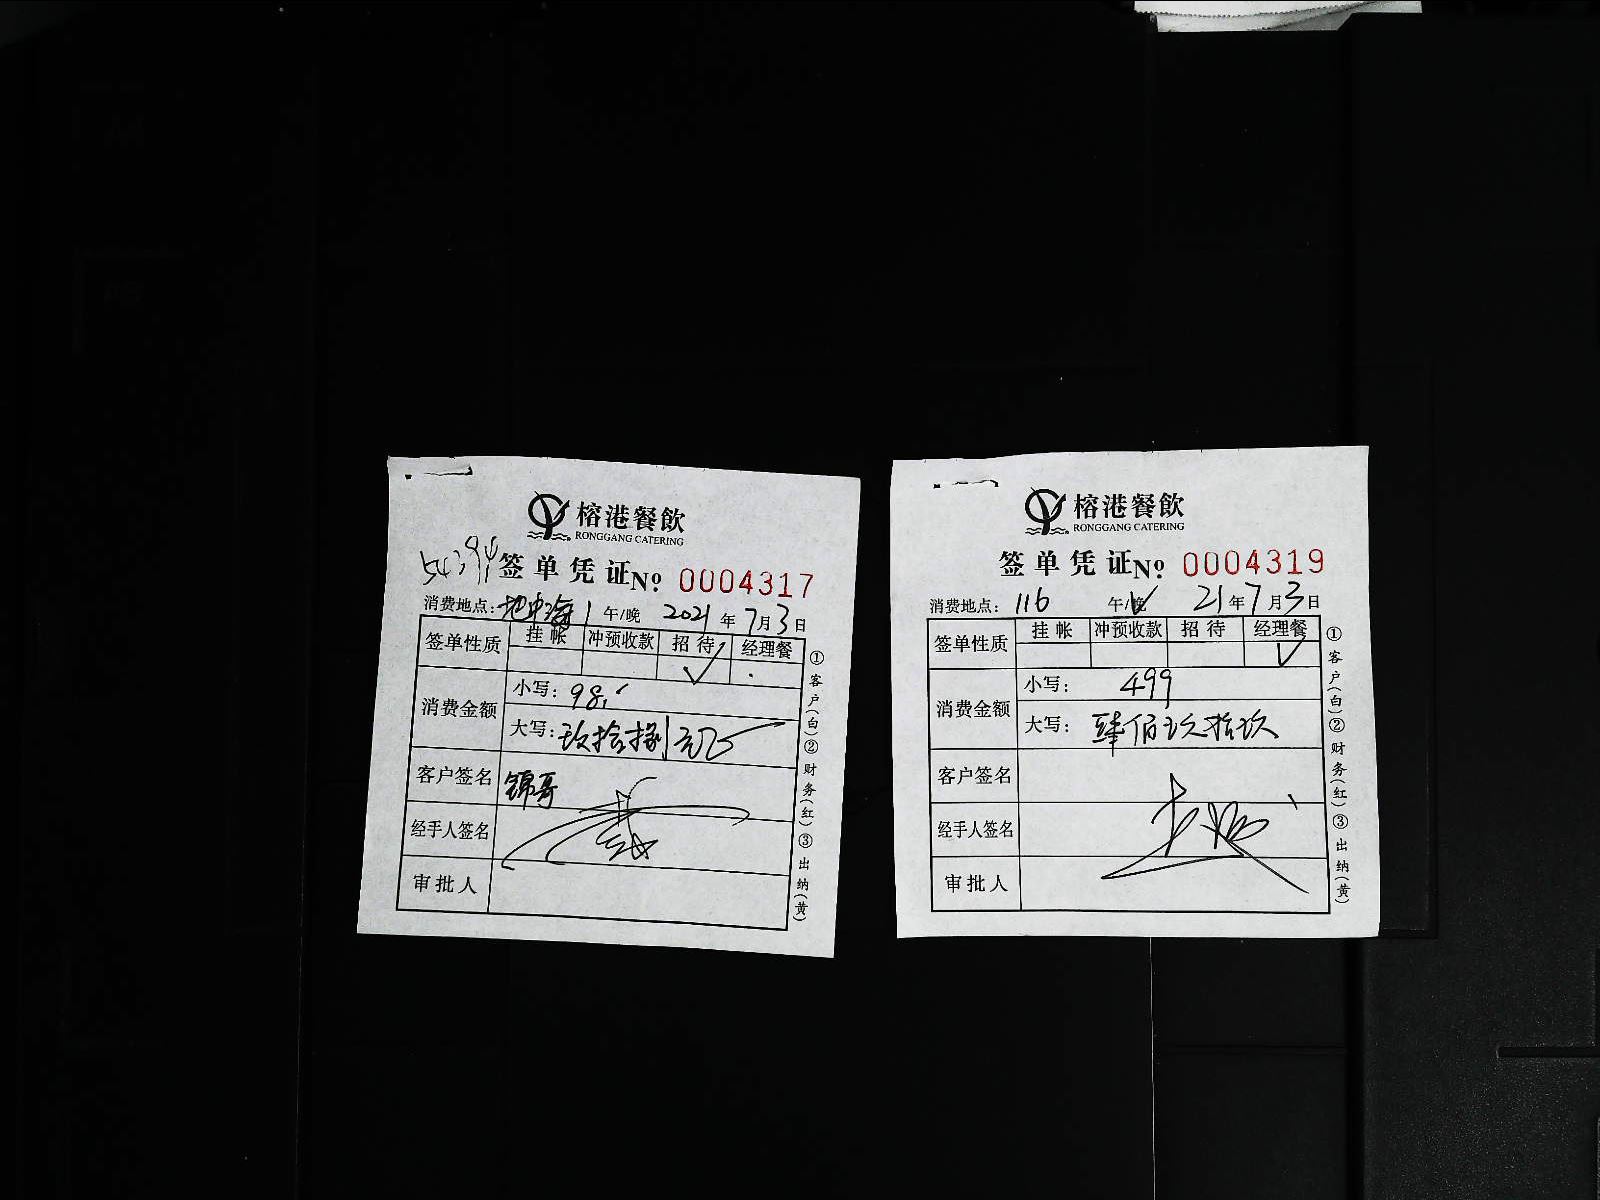 榕港餐飲
RONGGANG CATERING
54394
签单凭证 No 0004317
消费地点：地中海1 午/晚 2021年7月3日
签单性质 挂帐 冲预收款 招待 经理餐
✓
消费金额 小写：98.
大写：玖拾捌元
客户签名 锦哥
经手人签名
审批人
①客户(白)②财务(红)③出纳(黄)
榕港餐飲
RONGGANG CATERING
签单凭证 No 0004319
消费地点：116 午/晚 21年7月3日
签单性质 挂帐 冲预收款 招待 经理餐
✓
消费金额 小写：499
大写：肆佰玖拾玖
客户签名
经手人签名
审批人
①客户(白)②财务(红)③出纳(黄)